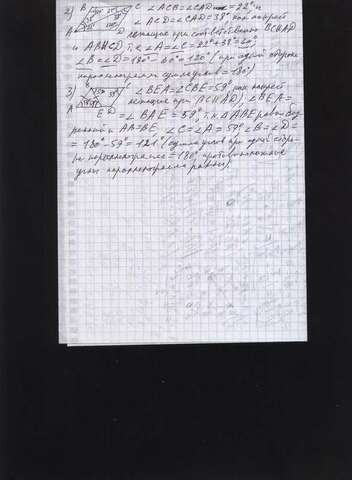 2) B C ∠ACB=∠CAD=22° и
∠ACD=∠CAB=38° как накрест
A D лежащие при соответственно BC||AD
и AB||CD, т.к. ∠A=∠C=22°+38°=60°,
∠B=∠D=180°-60°=120° (при одной стороне
параллелограмма сумма углов=180°)
3) ∠BEA=∠CBE=59° как накрест
лежащие при BC||AD), ∠BEA=
A E D =∠BAE=59°, т.к. ΔABE равнобед-
ренный и AB=BE ∠C=∠A=59° ∠B=∠D=
=180°-59°=121° (сумма углов при одной сторо-
не параллелограмма=180°, противоположные
углы параллелограмма равны).